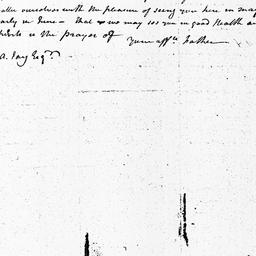 ourselves with the pleasure of seeing you here in may
early in June - that we may see you in good Health and
is the prayer of your affte. Father
A. Jay Esqr.